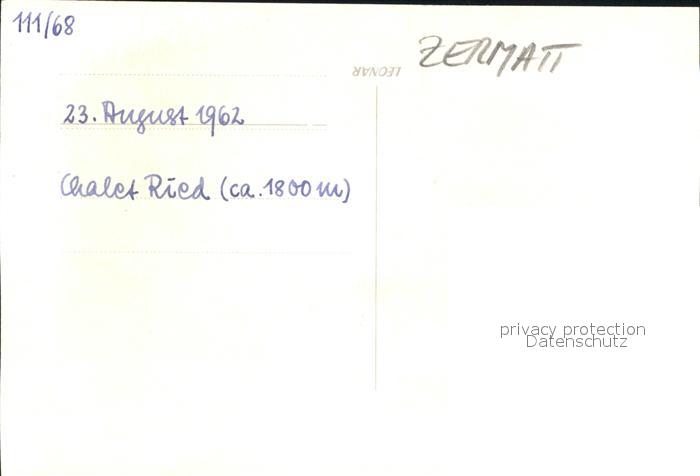 111/68
ZERMATT
LEONAR
23. August 1962
Chalet Ried (ca. 1800 m)
privacy protection
Datenschutz